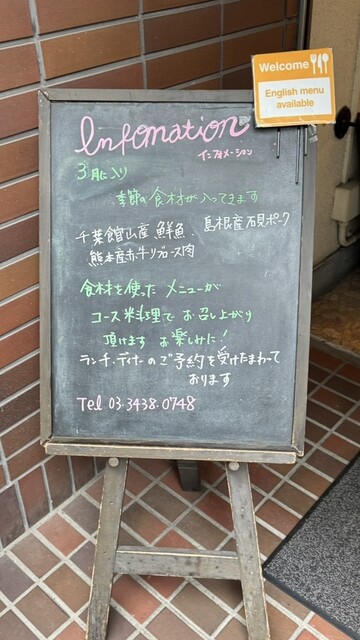 Welcome
English menu
available
Infomation
インフォメーション
3月に入り
季節の食材が入ってきます
千葉館山産 鮮魚、島根産石見ポーク
熊本産赤牛リブロース肉
食材を使った メニューが
コース料理で お召し上がり
頂けます お楽しみに!
ランチ・ディナーのご予約を受けたまわって
おります
Tel 03-3438-0748